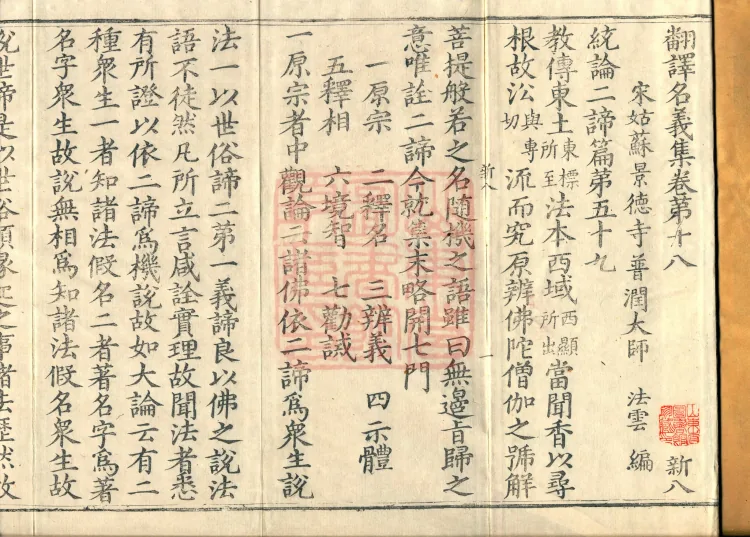 翻譯名義集卷第十八 新八
宋姑蘇景德寺普潤大師 法雲 編
統論二諦篇第五十九
教傳東土東標所至法本西域西顯所出當聞香以尋
根故沿與專切流而究原辨佛陀僧伽之號解
新八 一
菩提般若之名隨機之語雖曰無邊旨歸之
意唯詮二諦今就集末略開七門
一原宗 二釋名 三辨義 四示體
五釋相 六境智 七勸誡
一原宗者中觀論云諸佛依二諦為衆生說
法一以世俗諦二第一義諦良以佛之說法
語不徒然凡所立言咸詮實理故聞法者悉
有所證以依二諦為機說故如大論云有二
種衆生一者知諸法假名二者著名字為著
名字衆生故說無相為知諸法假名衆生故
說世諦是以世俗頗緣之事諸法歷然故